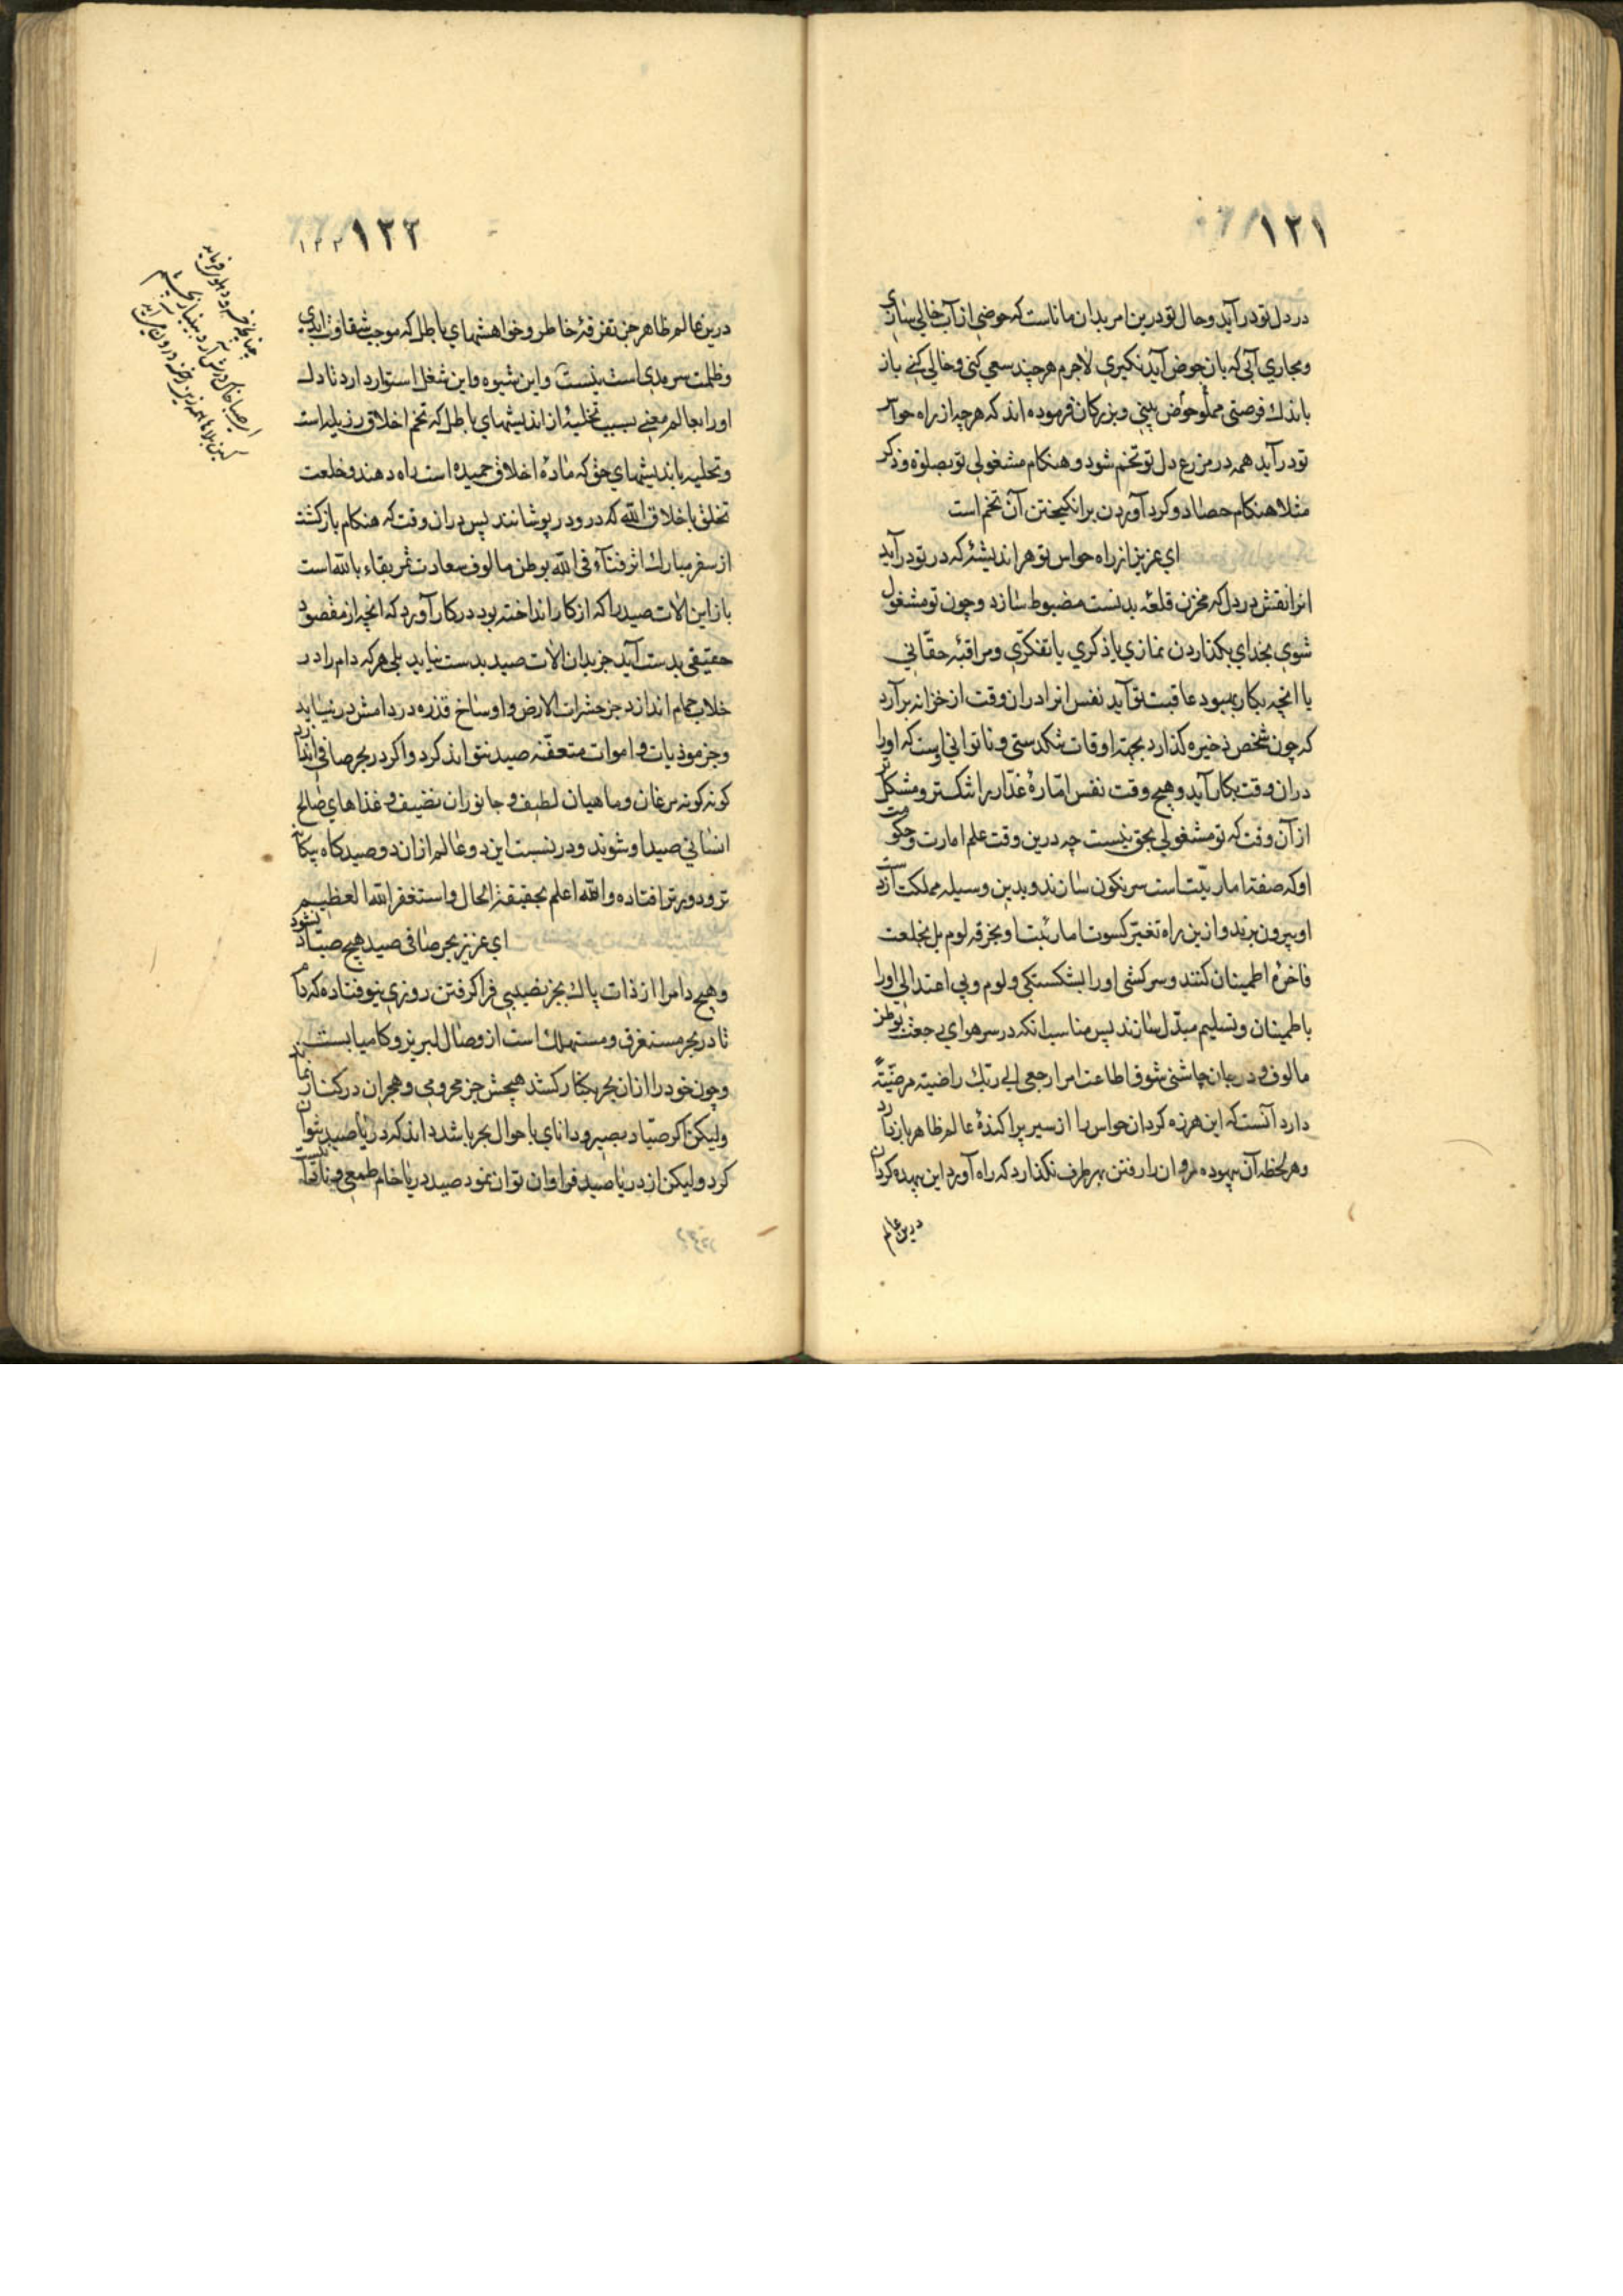 ١٢١
در دل تو درآید و حال تو درین امر بدان ماناست که حوضی از آب خالی سازی
و مجاری آبی که بان حوض آید نکیری لاجرم هر چند سعی کنی و خالی کنی باز
باندك فرصتی مملو حوض بینی و بزرکان فرموده اند که هر چه از راه حواس
تو درآید همه در مزرع دل تو تخم شود و هنکام مشغولی تو بصلوة و ذکر
مثلا هنکام حصاد و کرد آوردن برانکیختن آن تخم است
ای عزیز از راه حواس تو هر اندیشهٔ که در تو درآید
انرا نقش در دل که مخزن قلعهٔ بدنست مضبوط سازد و چون تو مشغول
شوی بخدای بکذاردن نمازی یا ذکری یا تفکری و مراقبهٔ حقانی
یا انچه بکار بهبود عاقبت تو آید نفس انرا دران وقت از خزانه برآرد
که چون شخص ذخیره کذارد بجهة اوقات تنکدستی و ناتوانی اوست که او را
دران وقت بکار آید و هیچ وقت نفس امّارهٔ غدّار را شکستر و مشکلتر
از آن وقت که تو مشغولی بحق نیست چه درین وقت علم امارت و حکومت
او که صفة اماریّت است سرنکون سازند و بدین وسیله مملکت از دست
او بیرون برند و ازین راه تغییر کسوت اماریّت او بخرقه لوم بل بخلعت
فاخرهٔ اطمینان کنند و سرکشی او را بشکستکی و لوم و بی اعتدالی او را
باطمینان و تسلیم مبدّل سازند پس مناسب انکه در سر هوای رجعت بوطن
مالوف و در جان چاشنی شوق اطاعت امر ارجعی الی ربّك راضیة مرضیّةً
دارد آنست که این هرزه کردان حواس را از سیر پراکندهٔ عالم ظاهر باز دارد
و هر لحظه آن بیهوده روان را رفتن بهر طرف نکذارد که راه آورد این بیهده کردان
درین عالم
١٢٢
درین عالم ظاهر جز تفرقهٔ خاطر و خواهشهای باطل که موجب شقاوت ابدی
و ظلمت سرمدی است نیست و این شیوه و این شغل استوار دارد تا دل
او را بعالم معنی بسبب تخلیهٔ از اندیشهای باطل که تخم اخلاق رزیله است
و تحلیه باندیشهای حق که مادهٔ اخلاق حمیده است راه دهند و خلعت
تخلق باخلاق الله که در و در پوشانند پس دران وقت که هنکام بازکشت
از سفر مبارك اثر فنآء فی الله بوطن مالوف سعادت ثمر بقاء بالله است
باز این الات صید را که از کار انداخته بود در کار آورد که انچه از مقصود
حقیقی بدست آید جز بدان الات صید بدست نیاید بلی هر که دام را در
خلاب حمام اندازد جز حشرات الارض و اوساخ قذره در دامش در نیاید
و جز موذیات و اموات متعفّنه صید نتواند کرد و اکر در بحر صافی اندازد
کونه کونه مرغان و ماهیان لطیف و جانوران نضیف و غذاهای صالح
انسانی صید او شوند و در نسبت این دو عالم ازان دو صید کاه بیکانه
تر و دورتر افتاده و الله اعلم بحقیقة الحال و استغفر الله العظیم
ای عزیز بحر صافی صید هیچ صیّاد نشود
و هیچ دام را از ذات پاك بجز نصیبی فرا کرفتن روزی نیوفتاده که دام
تا در بحر مستغرق و مستهلك است از وصال لبریز و کامیابست
و چون خود را ازان بحر بکنار کشد هیچش جز محرومی و هجران در کنار نماند
ولیکن اکر صیّاد بصیر و دانای باحوال بحر باشد داند که دریا صید نتوان
کرد ولیکن از دریا صید فراوان توان نمود صید دریا خام طمعی و